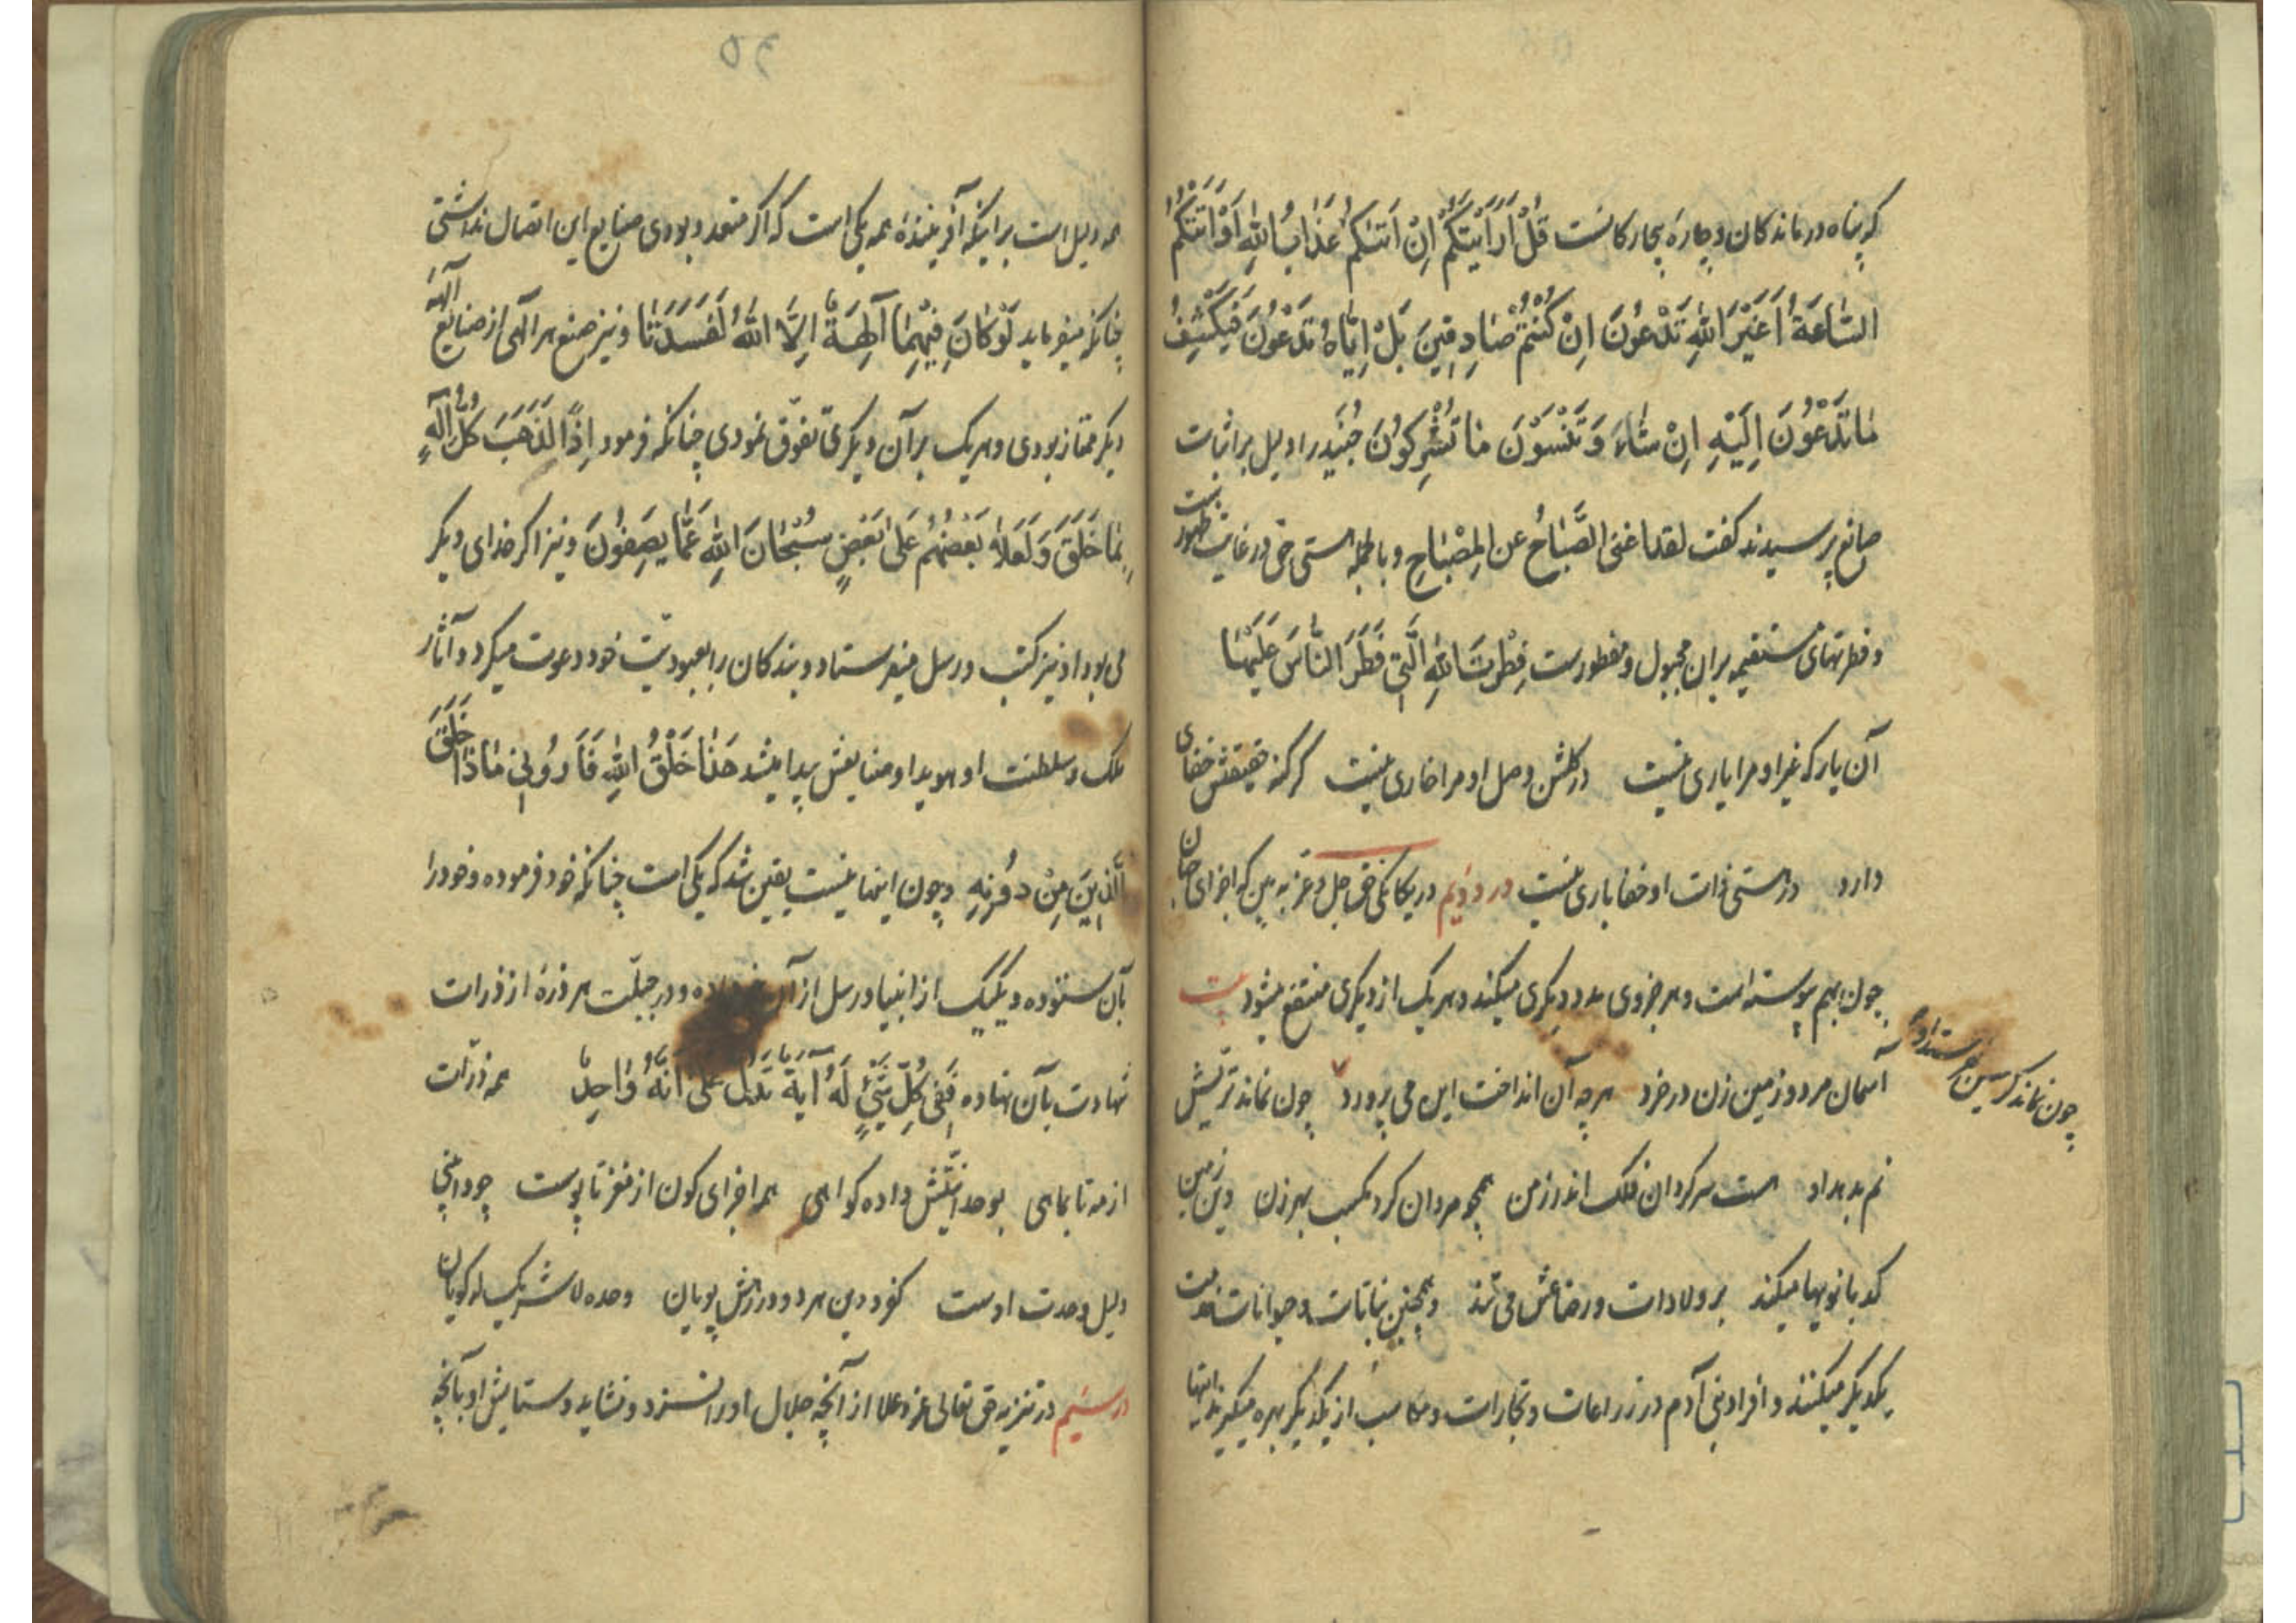 که پناه درماندکان و چارهٔ بیچارکانست قُلْ أَرَأَيْتَكُمْ اِنْ اَتٰىكُمْ عَذٰابُ اللّٰهِ اَوْ اَتَتْكُمُ
السّٰاعَةُ اَغَيْرَ اللّٰهِ تَدْعُونَ اِنْ كُنْتُمْ صٰادِقِينَ بَلْ اِيّٰاهُ تَدْعُونَ فَيَكْشِفُ
مٰا تَدْعُونَ اِلَيْهِ اِنْ شٰاءَ وَ تَنْسَوْنَ مٰا تُشْرِكُونَ جُنَید را دلیل بر اثبات
صانع پرسیدند کفت لقد اغنی الصَّبٰاحُ عن المِصْبٰاحِ و بالجمله هستی حق در غایت ظهور است
و فطرتهای مستقیمه بران مجبول و مفطورست فِطْرَتَ اللّٰهِ الَّتِي فَطَرَ النّٰاسَ عَلَيْهٰا
آن یار که غیر او مرا یاری نیست در کلشن وصل او مرا خاری نیست کر کنه حقیقتش خفای
دارد در هستی ذات او خفا باری نیست در دوّیم در یکانکی حق جل و عز به بین که اجزای جهان
چون بهم پیوسته است و هر جزوی مدد دیکری میکند و هر یک از دیکری منتفع میشود بیت
آسمان مرد و زمین زن در خرد هر چه آن انداخت این می پرورد چون نماند ترّیش
چون نماند کرمیش بفرستد او
نم بدهد او هست سرکردان فلک اندر زمن همچو مردان کرد مکسب بهر زن وین زمین
کدبانویها میکند بر ولادات و رضاعش می تند و همچنین نباتات و حیوانات
یکدیکر میکنند و افراد بنی آدم در زراعات و تجارات و مکاسب از یکدیکر بهره میکیرند اینها
۲۵
همه دلیل است براینکه آفرینندهٔ همه یکی است که اکر متعدد بودی صنایع این اتصال نداشتی
چنانکه میفرماید لَوْ كٰانَ فِيهِمٰا آلِهَةٌ اِلَّا اللّٰهُ لَفَسَدَتٰا و نیز صنع هر الهی از صنایع آلهه
دیکر ممتاز بودی و هر یک بر آن دیکری تفوّق نمودی چنانکه فرمود اِذًا لَذَهَبَ كُلُّ اِلٰهٍ
بِمٰا خَلَقَ وَ لَعَلاٰ بَعْضُهُمْ عَلىٰ بَعْضٍ سُبْحٰانَ اللّٰهِ عَمّٰا يَصِفُونَ و نیز اکر خدای دیکر
می بود او نیز کتب و رسل میفرستاد و بندکان را بعبودیّت خود دعوت میکرد و آثار
ملک و سلطنت او هویدا و صنایعش پیدا میشد هَذٰا خَلْقُ اللّٰهِ فَاَرُونِي مٰاذٰا خَلَقَ
الَّذِينَ مِنْ دُونِهِ و چون اینها نیست یقین شد که یکی است چنانکه خود فرموده و خود را
بآن ستوده و یکیک از انبیا و رسل از آن داده و در جبلّت هر ذرهٔ از ذرات
شهادت بآن نهاده فَفِي كُلِّ شَيْءٍ لَهُ آيَةٌ تَدُلُّ عَلىٰ اَنَّهُ وٰاحِدٌ همه ذرّات
از مه تا بماهی بوحدانیّتش داده کواهی همه اجزای کون از مغز تا پوست چو وابینی
دلیل وحدت اوست کفر و دین هر دو در رهش پویان وحده لا شریک له کویان
در سیّم در تنزیه حق تعالی عز و علا از آنچه جلال او را نسزد و نشاید و ستایش او بآنچه